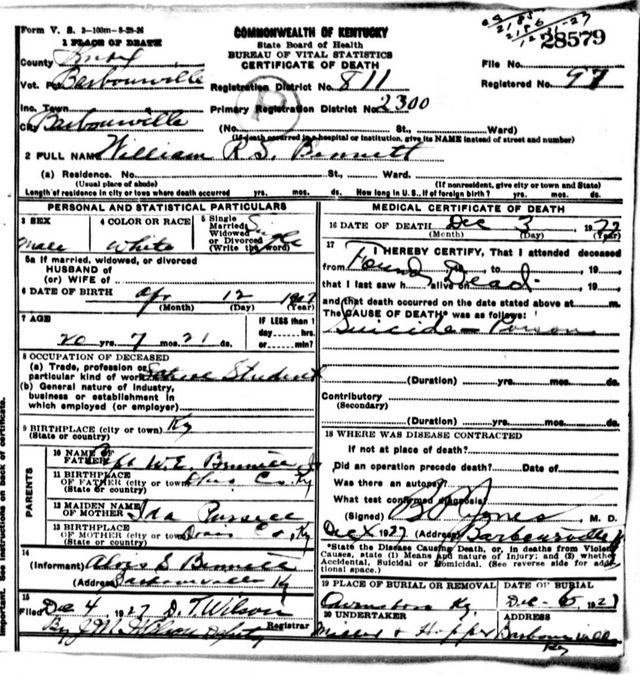 Form V. S. 2-100m-8-28-26
COMMONWEALTH OF KENTUCKY
State Board of Health
BUREAU OF VITAL STATISTICS
CERTIFICATE OF DEATH
28579
1 PLACE OF DEATH
County Knox
File No.
Vot. Pct. Barbourville
Registration District No. 811
Registered No. 97
Inc. Town
Primary Registration District No. 2300
City Barbourville (No. St., Ward)
(If death occurred in a hospital or institution, give its NAME instead of street and number)
2 FULL NAME William R.S. Bennett
(a) Residence. No. St., Ward.
(Usual place of abode) (If nonresident, give city or town and State)
Length of residence in city or town where death occurred yrs. mos. ds. How long in U. S., If of foreign birth? yrs. mos. ds.
PERSONAL AND STATISTICAL PARTICULARS
3 SEX
Male
4 COLOR OR RACE
White
5 Single
Married,
Widowed
or Divorced
(Write the word)
Single
5a If married, widowed, or divorced
HUSBAND of
(or) WIFE of
6 DATE OF BIRTH Apr 12
(Month) (Day) (Year)
7 AGE
20 yrs. 7 mos. 21 ds.
IF LESS than 1
day hrs.
or min?
8 OCCUPATION OF DECEASED
(a) Trade, profession or
particular kind of work Student
(b) General nature of industry,
business or establishment in
which employed (or employer)
9 BIRTHPLACE (city or town) Ky
(State or country)
PARENTS
10 NAME OF
FATHER W. E.
11 BIRTHPLACE
OF FATHER (city or town) Co. Ky
(State or country)
12 MAIDEN NAME
OF MOTHER Ida
13 BIRTHPLACE
OF MOTHER (city or town) Co., Ky
(State or country)
14
(Informant) Bennett
(Address) Ky
15
Filed Dec 4, 1927 D. T. Wilson
Registrar
By J. M. Deputy
MEDICAL CERTIFICATE OF DEATH
16 DATE OF DEATH Dec 3 1927
(Month) (Day) (Year)
17
I HEREBY CERTIFY, That I attended deceased
from Found, 19 , to , 19 ,
that I last saw h alive on Dead , 19 ,
and that death occurred on the date stated above at m.
The CAUSE OF DEATH* was as follows:
Suicide - Poison
(Duration) yrs. mos. ds.
Contributory
(Secondary)
(Duration) yrs. mos. ds.
18 WHERE WAS DISEASE CONTRACTED
If not at place of death?
Did an operation precede death? Date of
Was there an autopsy?
What test confirmed diagnosis?
(Signed) Jones, M. D.
Dec 1927 (Address) Barbourville
*State the Disease Causing Death, or, in deaths from Violent
Causes, state (1) Means and nature of Injury; and (2) whether
Accidental, Suicidal or Homicidal. (See reverse side for addi-
tional space.)
19 PLACE OF BURIAL OR REMOVAL
Owensboro Ky.
DATE OF BURIAL
Dec 1927
20 UNDERTAKER
Hopper
ADDRESS
Barbourville
Ky
important. See instructions on back of certificate.